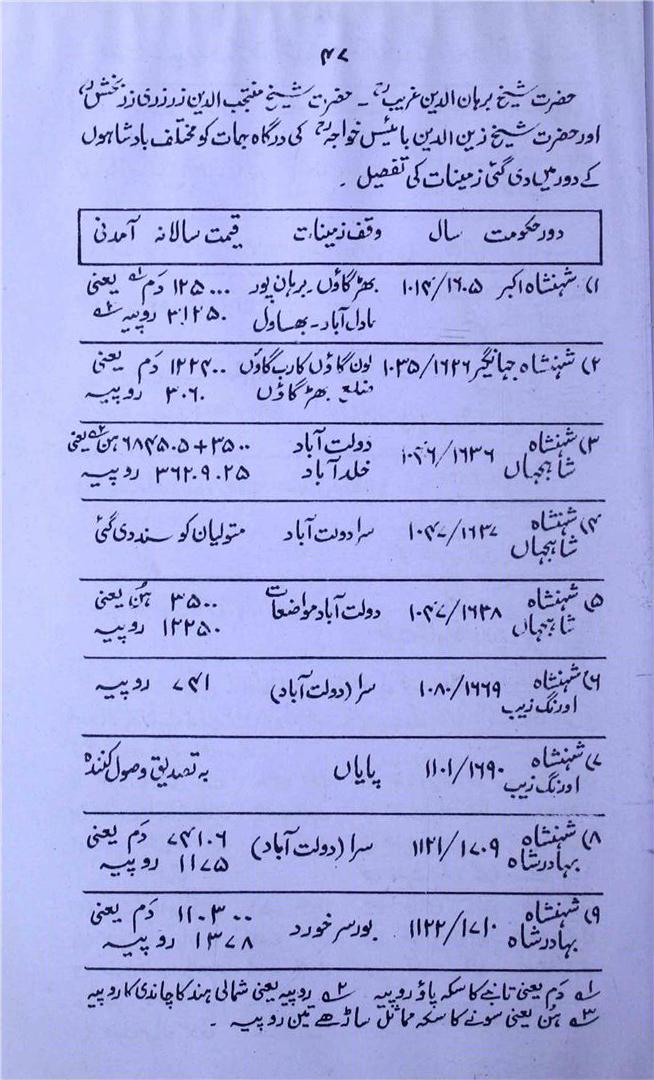 ۴۷
حضرت شیخ برہان الدین غریبؒ ۔ حضرت شیخ منتجب الدین زرزری زربخشؒ
اور حضرت شیخ زین الدین بائیس خواجہؒ کی درگاہ جات کو مختلف بادشاہوں
کے دور میں دی گئی زمینات کی تفصیل ۔
دور حکومت سال وقف زمینات قیمت سالانہ آمدنی
۱) شہنشاہ اکبر ۱۰۱۴/۱۶۰۵ بھڑگاؤں۔برہان پور ۱۲۵۰۰۰ دَم ؎۱ یعنی
عادل آباد۔بھساول ۳۱۲۵۰ روپیہ ؎۲
۲) شہنشاہ جہانگیر ۱۰۳۵/۱۶۲۶ لون گاؤں کارب گاؤں ۱۲۲۴۰۰ دَم یعنی
ضلع بھڑگاؤں ۳۰۶۰ روپیہ
۳) شہنشاہ ۱۰۴۶/۱۶۳۶ دولت آباد ۳۵۰۰+۶۸۴۵۰۵ ہُن ؎۳ یعنی
شاہجہاں خلدآباد ۳۶۲۰۹۰۲۵ روپیہ
۴) شہنشاہ ۱۰۴۷/۱۶۳۷ سرا دولت آباد متولیان کو سند دی گئی
شاہجہاں
۵) شہنشاہ ۱۰۴۷/۱۶۳۸ دولت آباد مواضعات ۳۵۰۰ ہُن یعنی
شاہجہاں ۱۲۲۵۰ روپیہ
۶) شہنشاہ ۱۰۸۰/۱۶۶۹ سرا (دولت آباد) ۷۴۱ روپیہ
اورنگ زیب
۷) شہنشاہ ۱۱۰۱/۱۶۹۰ پایاں بہ تصدیق وصول کنندہ
اورنگ زیب
۸) شہنشاہ ۱۱۲۱/۱۷۰۹ سرا (دولت آباد) ۷۴۱۰۶ دَم یعنی
بہادر شاہ ۱۱۷۵ روپیہ
۹) شہنشاہ ۱۱۲۲/۱۷۱۰ بورسر خورد ۱۱۰۳۰۰ دَم یعنی
بہادر شاہ ۱۳۷۸ روپیہ
؎۱ دَم یعنی تانبے کا سکہ پاؤ روپیہ ؎۲ روپیہ یعنی شمالی ہند کا چاندی کا روپیہ
؎۳ ہُن یعنی سونے کا سکہ مماثل ساڑھے تین روپیہ ۔